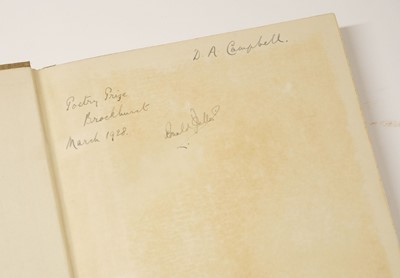 D. A. Campbell.
Poetry Prize
Brockhurst
March 1928.